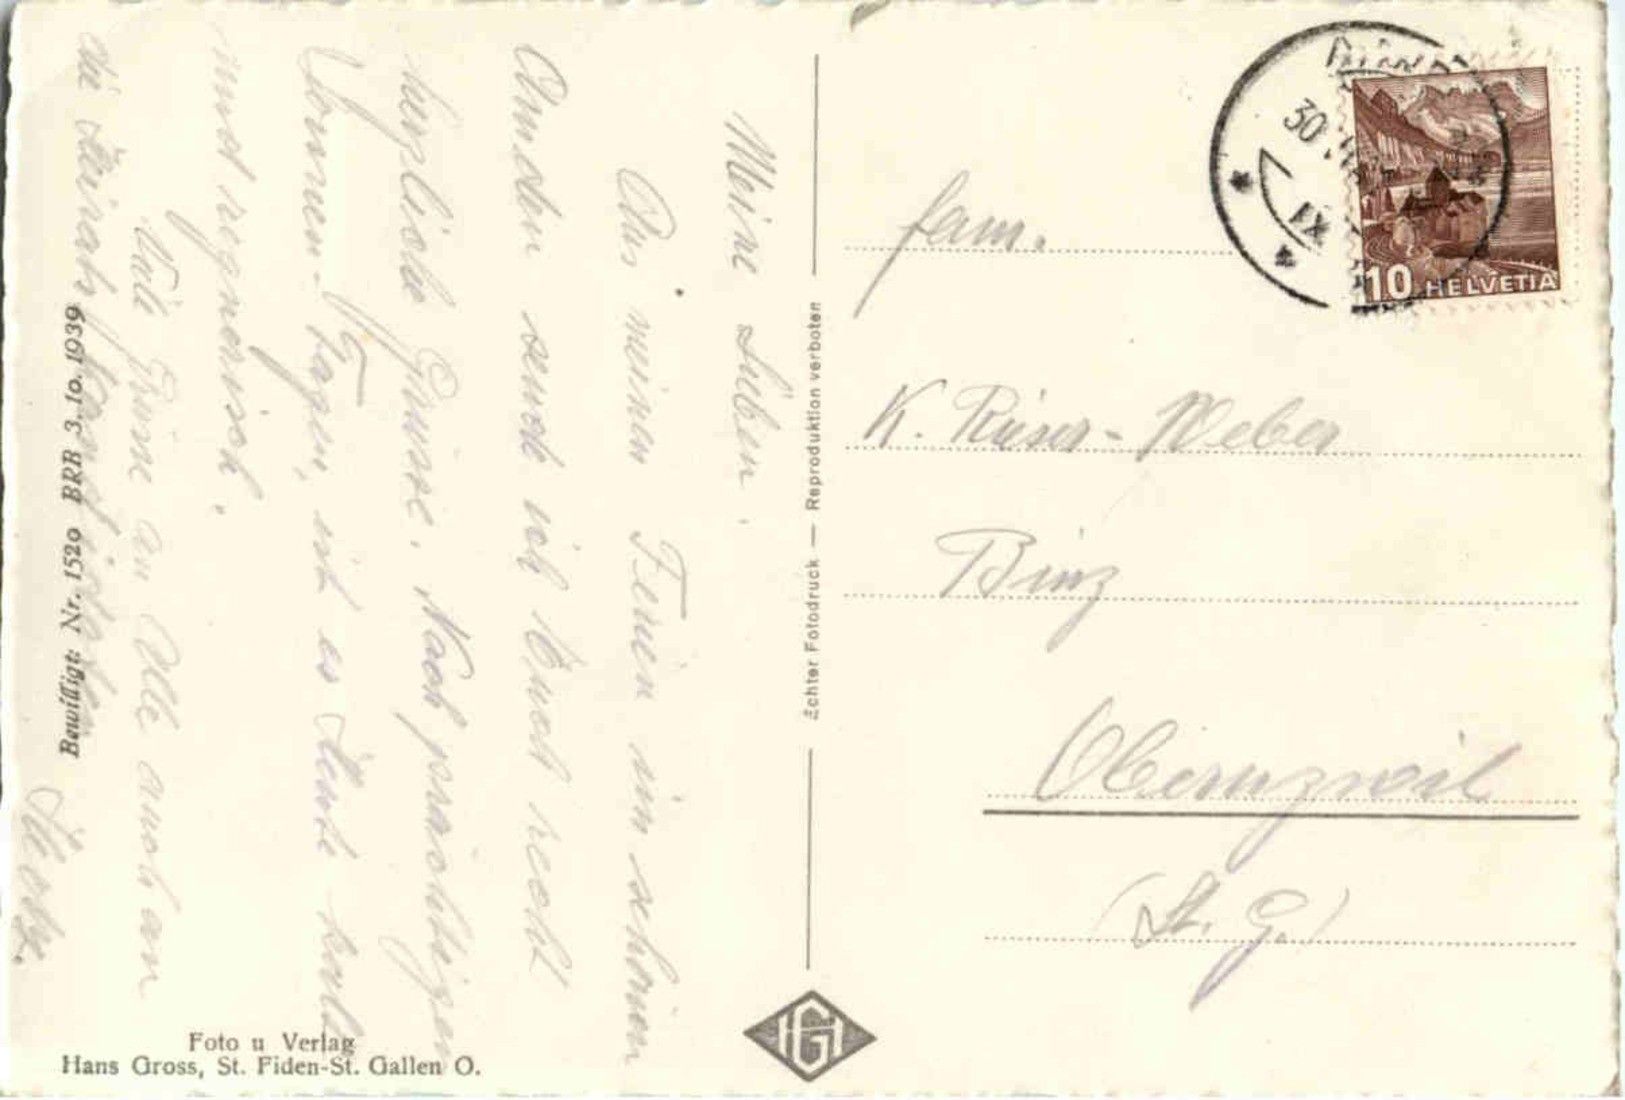 Meine Lieben.
Aus meinen Ferien im schönen
Amden sende ich Euch recht
herzliche Grüsse. Nach prächtigen
Sonnen-Tagen, ist es Heute kalt
und regnerisch.
Viele Grüsse an Alle auch an
die
Fam.
K. Rüser-Weber
Binz
Oberuzwil
(St. G.)
30
IX
10 HELVETIA
Echter Fotodruck — Reproduktion verboten
Bewilligt: Nr. 1520 BRB 3. 10. 1939
HG
Foto u Verlag
Hans Gross, St. Fiden-St. Gallen O.